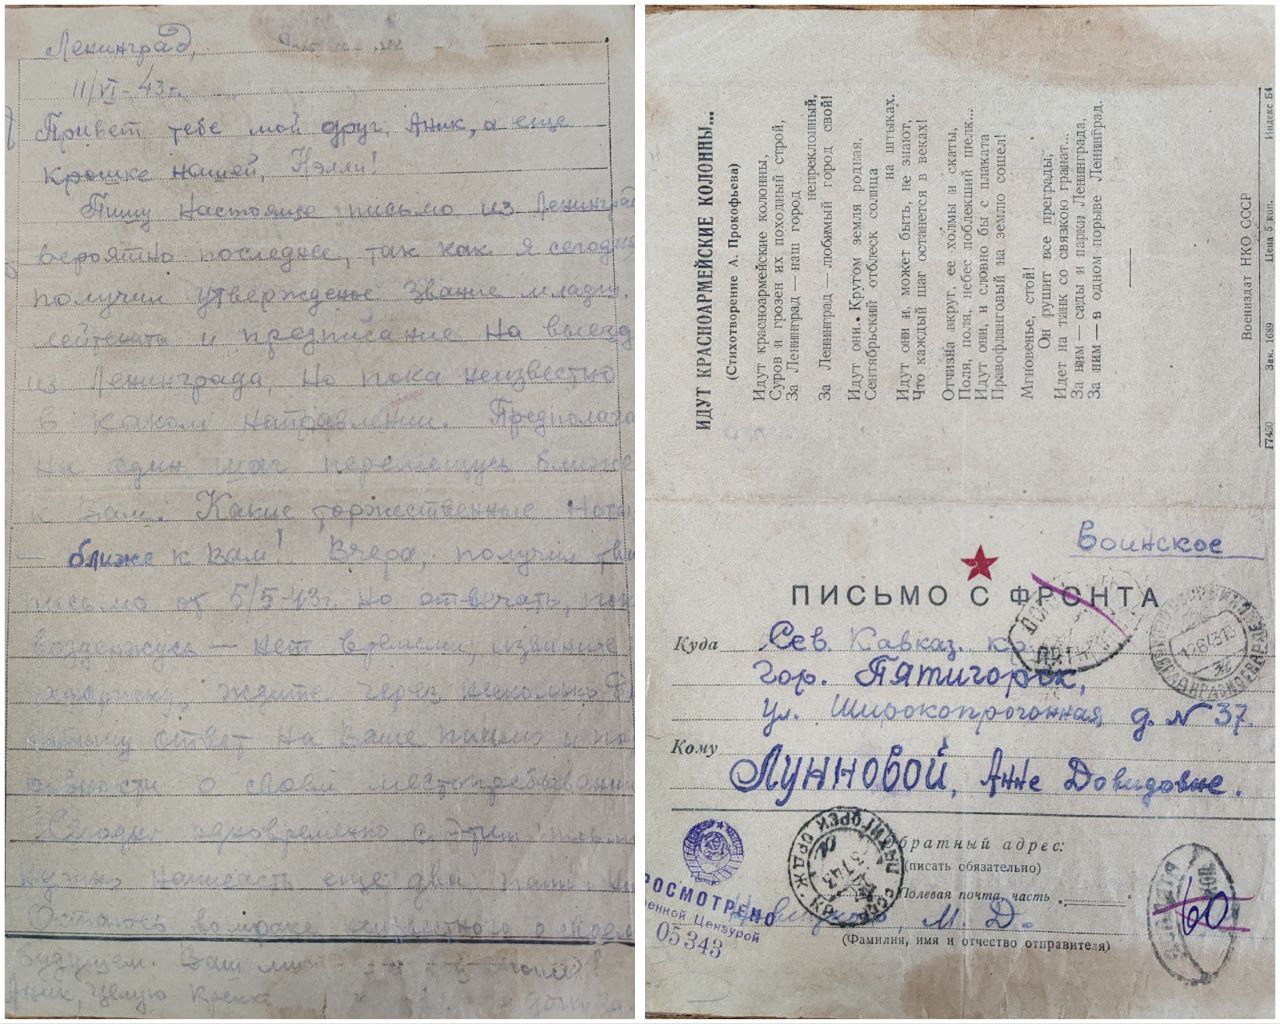 Ленинград,
11/VI-43 г.
Привет тебе мой друг, Аник, а еще
крошке нашей, Нэлли!
Пишу настоящее письмо из Ленинград
вероятно последнее, так как я сегодня
получил утверждение звание младш.
лейтената и предписание на выезд
из Ленинграда, но пока неизвестно
в каком направлении. Предполага
на один шаг перемещусь ближе
к Вам. Какие торжественные нот
— ближе к Вам! Вчера, получил
письмо от 5/5-43г. но отвечать, пок
воздержусь — нет времени, извините
задержку, ждите через несколько
ответ на Ваше письмо и по
о своем местопребывании
Сегодня одновременно с этим
нужно написать еще два
Остаюсь во мраке неизвестного о своем
будущем. Ваш
Аник, целую крепко
ИДУТ КРАСНОАРМЕЙСКИЕ КОЛОННЫ...
(Стихотворение А. Прокофьева)
Идут красноармейские колонны,
Суров и грозен их походный строй,
За Ленинград — наш город
непреклонный,
За Ленинград — любимый город свой!
Идут они. Кругом земля родная,
Сентябрьский отблеск солнца
на штыках.
Идут они и, может быть, не знают,
Что каждый шаг останется в веках!
Отчизна вкруг, ее холмы и скаты,
Поля, поля, небес поблекший шелк...
Идут они, и словно бы с плаката
Правофланговый на землю сошел!
Мгновенье, стой!
Он рушит все преграды,
Идет на танк со связкою гранат...
За ним — сады и парки Ленинграда,
За ним — в одном порыве Ленинград.
Воениздат НКО СССР
Г7450 Зак. 1689 Цена 5 коп. Индекс Б4
Воинское
ПИСЬМО С ФРОНТА
Куда Сев. Кавказ. кр.
гор. Пятигорск,
ул. Широкопрогонная д. N 37.
Кому Лунновой, Анне Довидовне.
Обратный адрес:
(писать обязательно)
Полевая почта, часть
М. Д.
(Фамилия, имя и отчество отправителя)
ПРОСМОТРЕНО
Военной Цензурой
05343
ПЯТИГОРСК ОРДЖ. КР.
60